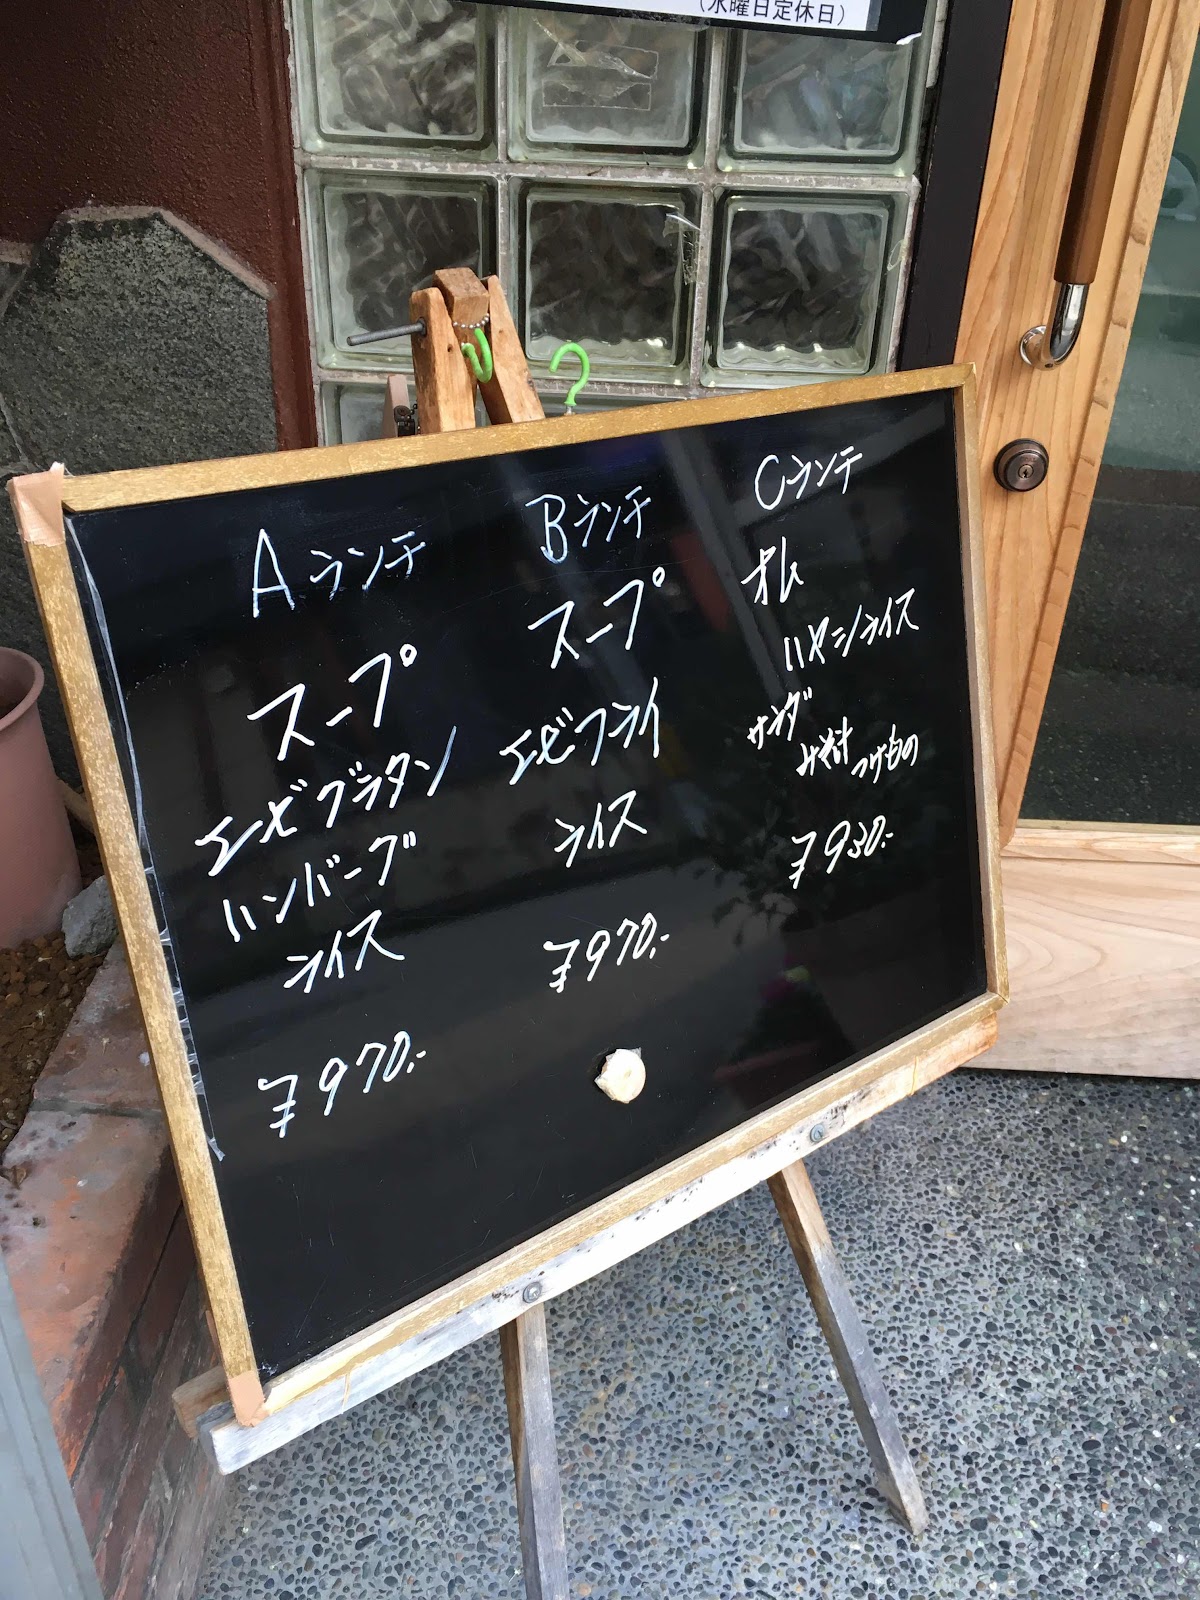 （水曜日定休日）
Aランチ
スープ
エビグラタン
ハンバーグ
ライス
¥970.-
Bランチ
スープ
エビフライ
ライス
¥970.-
Cランチ
オム
ハヤシライス
サラダ
みそ汁 つけもの
¥930.-